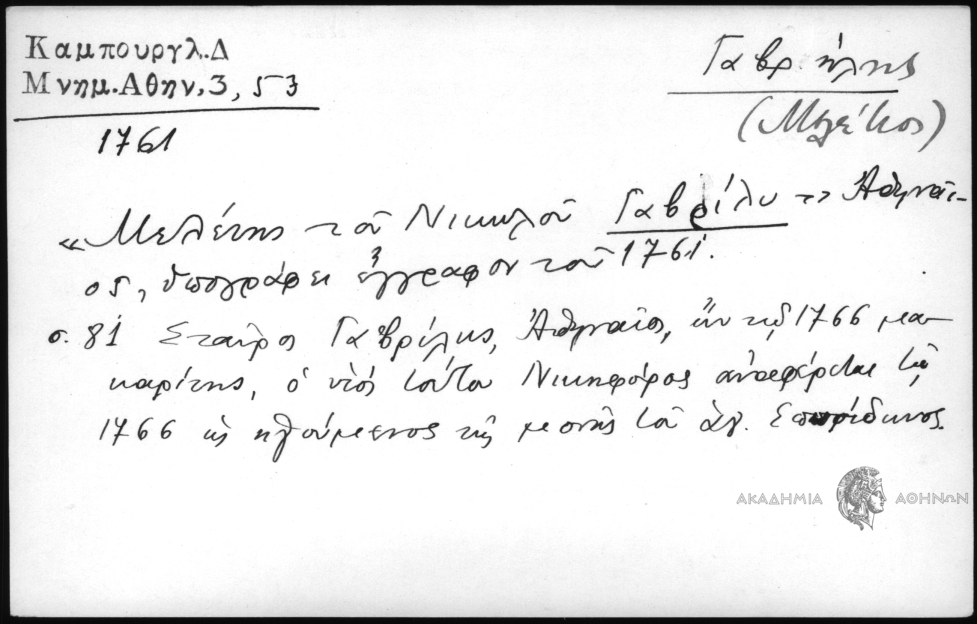 Καμπουργλ.Δ
Μνημ.Αθην.3, 53
1761
Γαβριήλης
(Μελέτιος)
«Μελέτης τοῦ Νικολοῦ Γαβρίλη Ἀθηναῖ-
ος, ὑπογράφει ἔγγραφον τοῦ 1761.
σ. 81 Σταῦρος Γαβρίλης, Ἀθηναῖος, ἐν τῷ 1766 μα-
καρίτης, ὁ υἱός τούτου Νικηφόρος ἀναφέρεται τῷ
1766 ὡς ἡγούμενος τῆς μονῆς τοῦ ἁγ. Σπυρίδωνος.
ΑΚΑΔΗΜΙΑ ΑΘΗΝΩΝ